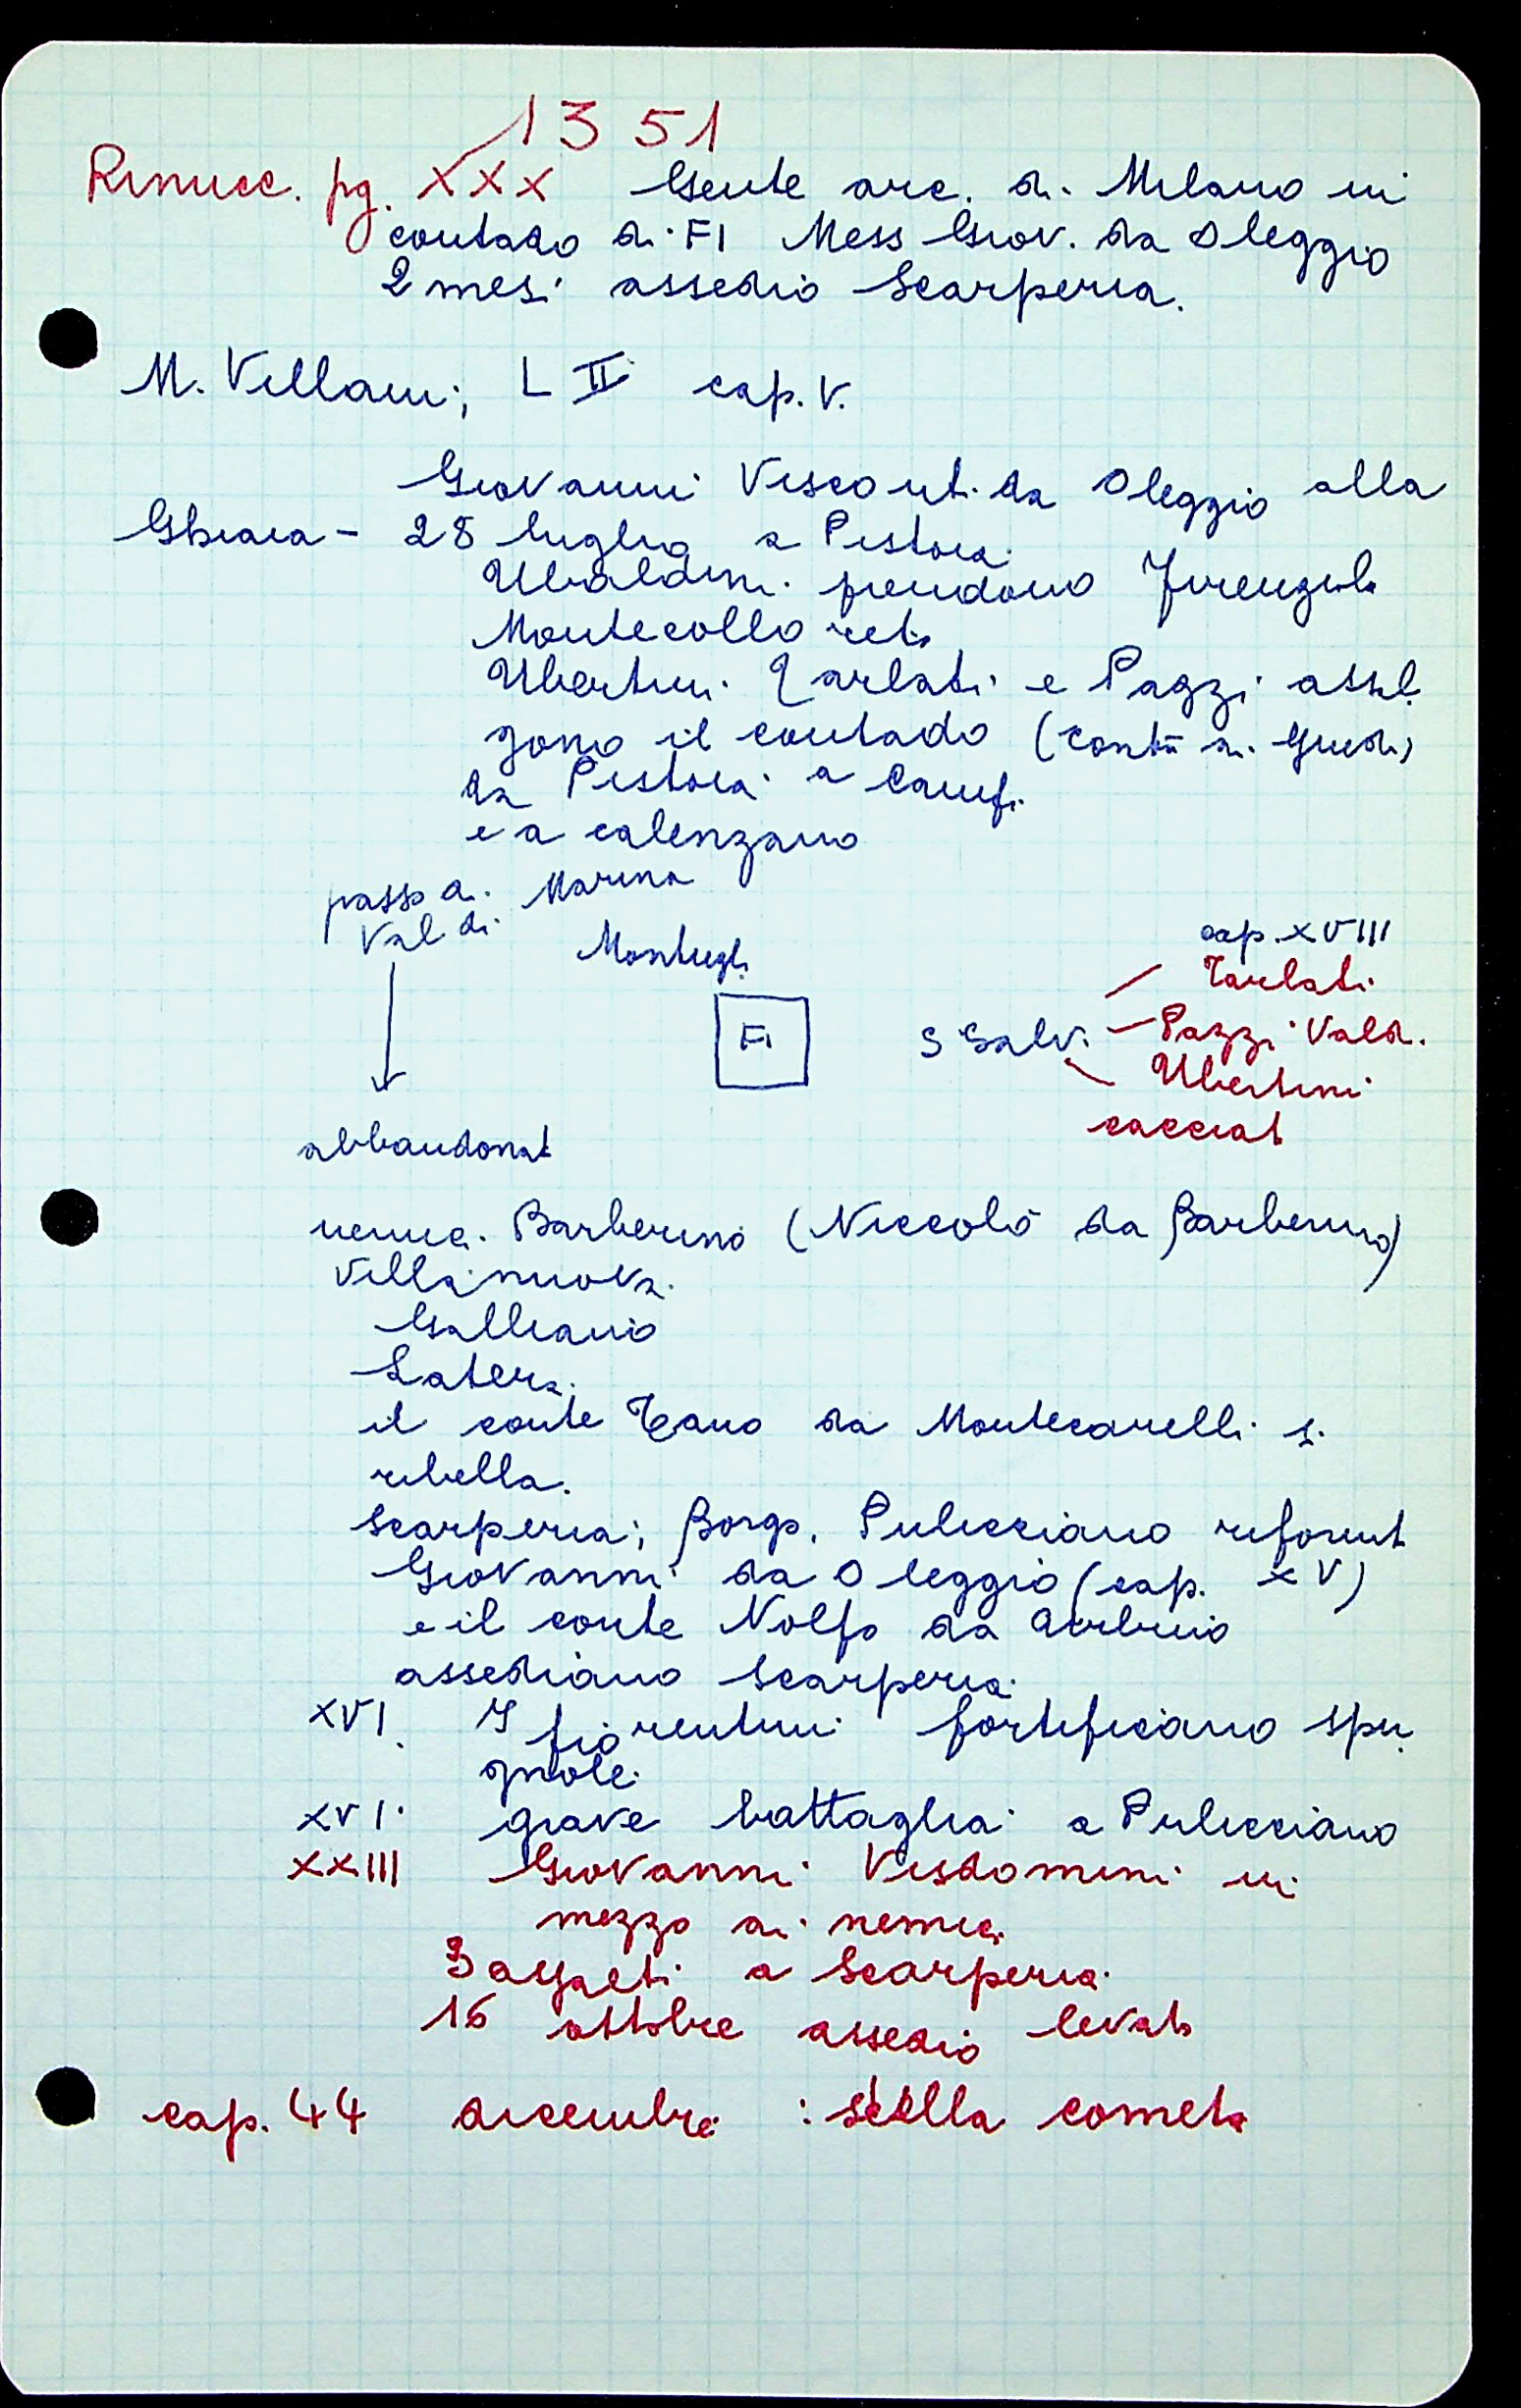 1351
Rinucc. pg. XXX Gente arc. di Milano in
contado di FI Mess Giov. da Oleggio
2 mesi assedio Scarperia.
M. Villani, L II cap. V.
Giovanni Visconti da Oleggio alla
Ghiaia - 28 luglio a Pistoia
Ubaldini prendono Firenzuola
Montecollo reto
Ubertini Tarlati e Pazzi assal
gono il contado (conti di Guidi)
da Pistoia a Campi
e a calenzano
passo di Marina
Val di
Montughi
cap. XVIII
Tarlati
FI S Salvi Pazzi Vald.
Ubertini
cacciat
abbandonat
nemici Barberino (Niccolò da Barberino)
Villanuova
Galliano
Latera
il conte Tano da Montecarelli si
ribella.
Scarperia, Borgo, Pulicciano rifornit
Giovanni da Oleggio (cap. XV)
e il conte Nolfo da Urbino
assediano Scarperia
XVI. I fiorentini fortificano Spu
gnole
XVI. grave battaglia a Pulicciano
XXIII Giovanni Visdomini in
mezzo ai nemici
3 assalti a Scarperia
16 ottobre assedio levato
cap. 44 dicembre : stella cometa